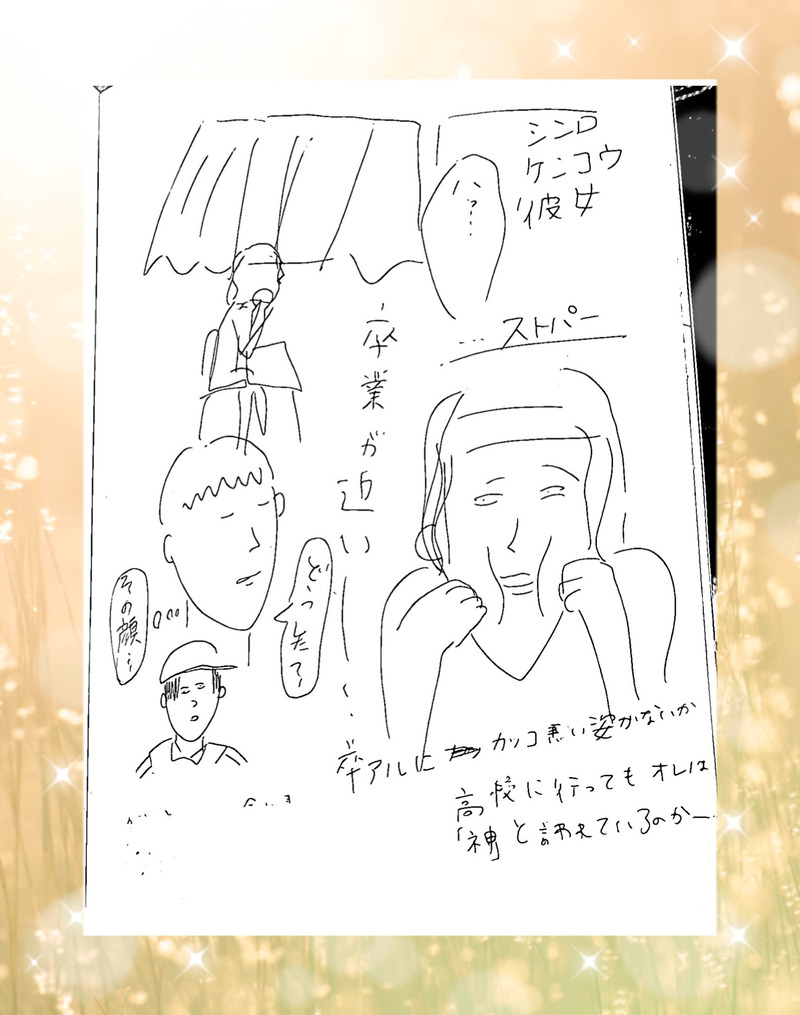 シンロ
ケンコウ
彼女
ハッ…
…ストパー
卒業が近い〜
どうした?
その顔…
卒アルに カッコ悪い姿がないか
高校に行っても オレは
「神」と言われているのかー